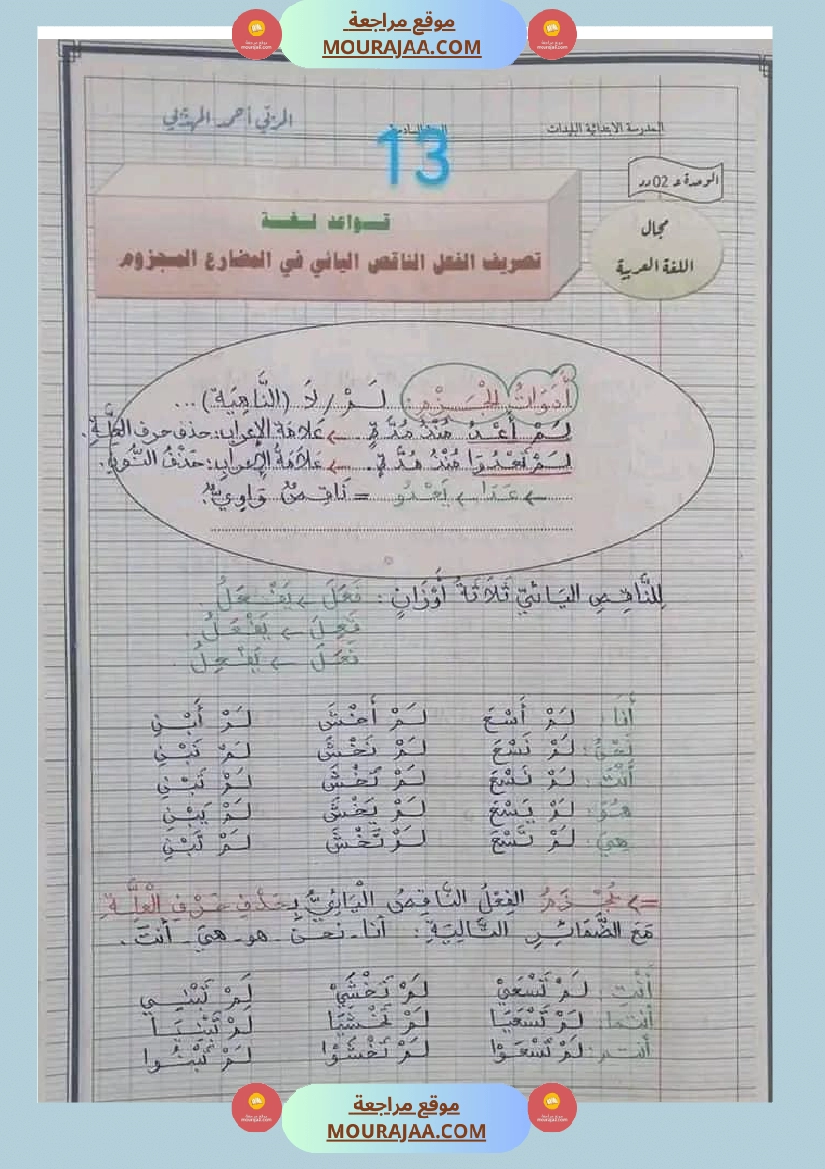 موقع مراجعة
MOURAJAA.COM
المدرسة الابتدائية
المربّي أحمد المهذبي
13
الوحدة د 02
مجال
اللغة العربية
قواعد لغة
تصريف الفعل الناقص اليائي في المضارع المجزوم
أَدَوَاتُ الْجَزْمِ: لَمْ / لَا (النَّاهِيَة) ...
لَمْ أَعْدُ مُنْذُ مُدَّةٍ. ← عَلَامَةُ الإِعراب: حذف حرف العلّةِ.
لَمْ تَعْدُوَا مُنْذُ مُدَّةٍ. ← عَلَامَةُ الإعراب: حَذْفُ النُّونِ.
← عَدَا ← يَعْدُو = نَاقِصٌ وَاوِيٌّ.
لِلنَّاقِصِ اليَائيّ ثَلَاثَةُ أَوْزَانٍ: فَعَلَ ← يَفْعَلُ
فَعِلَ ← يَفْعَلُ.
فَعَلَ ← يَفْعِلُ.
أَنَا: لَمْ أَسْعَ لَمْ أَخْشَ لَمْ أَبْنِ
نَحْنُ: لَمْ نَسْعَ لَمْ نَخْشَ لَمْ نَبْنِ
أَنْتَ: لَمْ تَسْعَ لَمْ تَخْشَ لَمْ تَبْنِ
هُوَ: لَمْ يَسْعَ لَمْ يَخْشَ لَمْ يَبْنِ
هِيَ: لَمْ تَسْعَ لَمْ تَخْشَ لَمْ تَبْنِ
=> يُجْزَمُ الفِعْلُ النَّاقِصُ الْيَائِيُّ بِحَذْفِ حَرْفِ الْعِلَّةِ
مَعَ الضَّمَائِرِ التَّالِيَةِ: أنا - نحن - هو - هيَ - أنتَ.
أَنْتِ: لَمْ تَسْعَيْ لَمْ تَخْشَيْ لَمْ تَبْنِي
أنتما: لَمْ تَسْعَيَا لَمْ تَخْشَيَا لَمْ تَبْنِيَا
أنتم: لَمْ تَسْعَوْا لَمْ تَخْشَوْا لَمْ تَبْنُوا
موقع مراجعة
MOURAJAA.COM